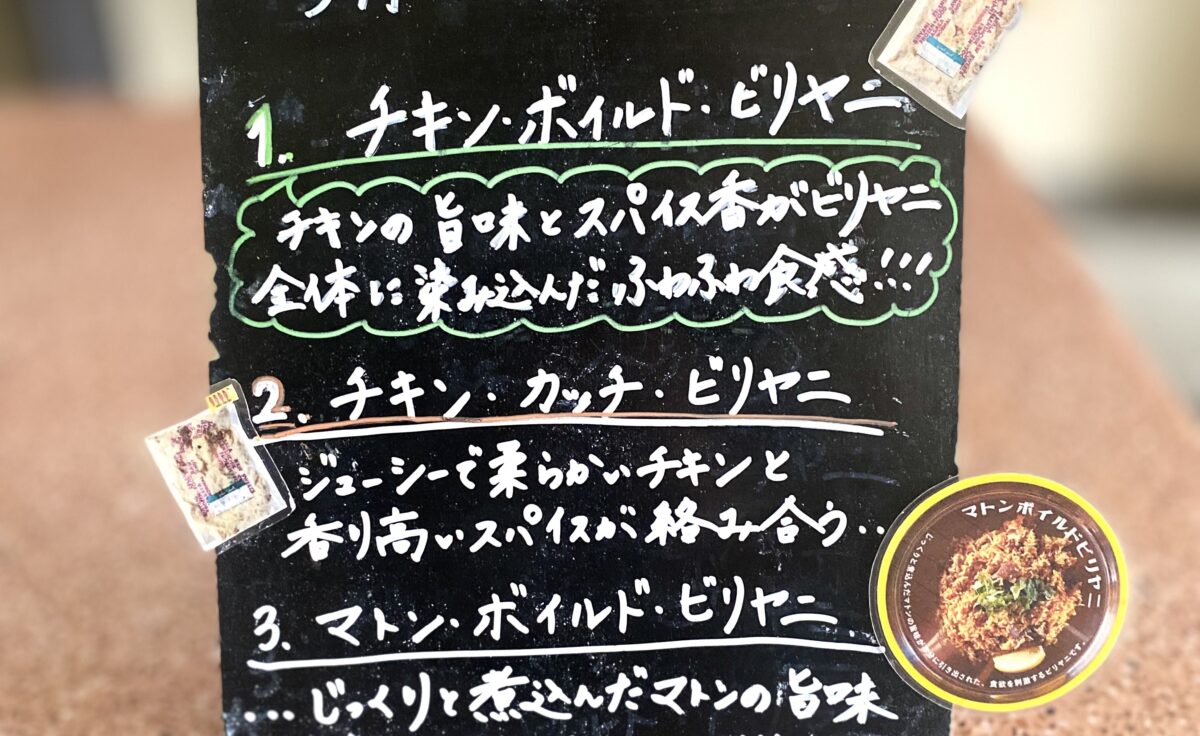 1. チキン・ボイルド・ビリヤニ
チキンの旨味とスパイス香がビリヤニ
全体に染み込んだふわふわ食感!!!
2. チキン・カッチ・ビリヤニ
ジューシーで柔らかいチキンと
香り高いスパイスが絡み合う…
3. マトン・ボイルド・ビリヤニ
…じっくりと煮込んだマトンの旨味
マトンボイルドビリヤニ
引き出された、食欲を刺激するビリヤニです。